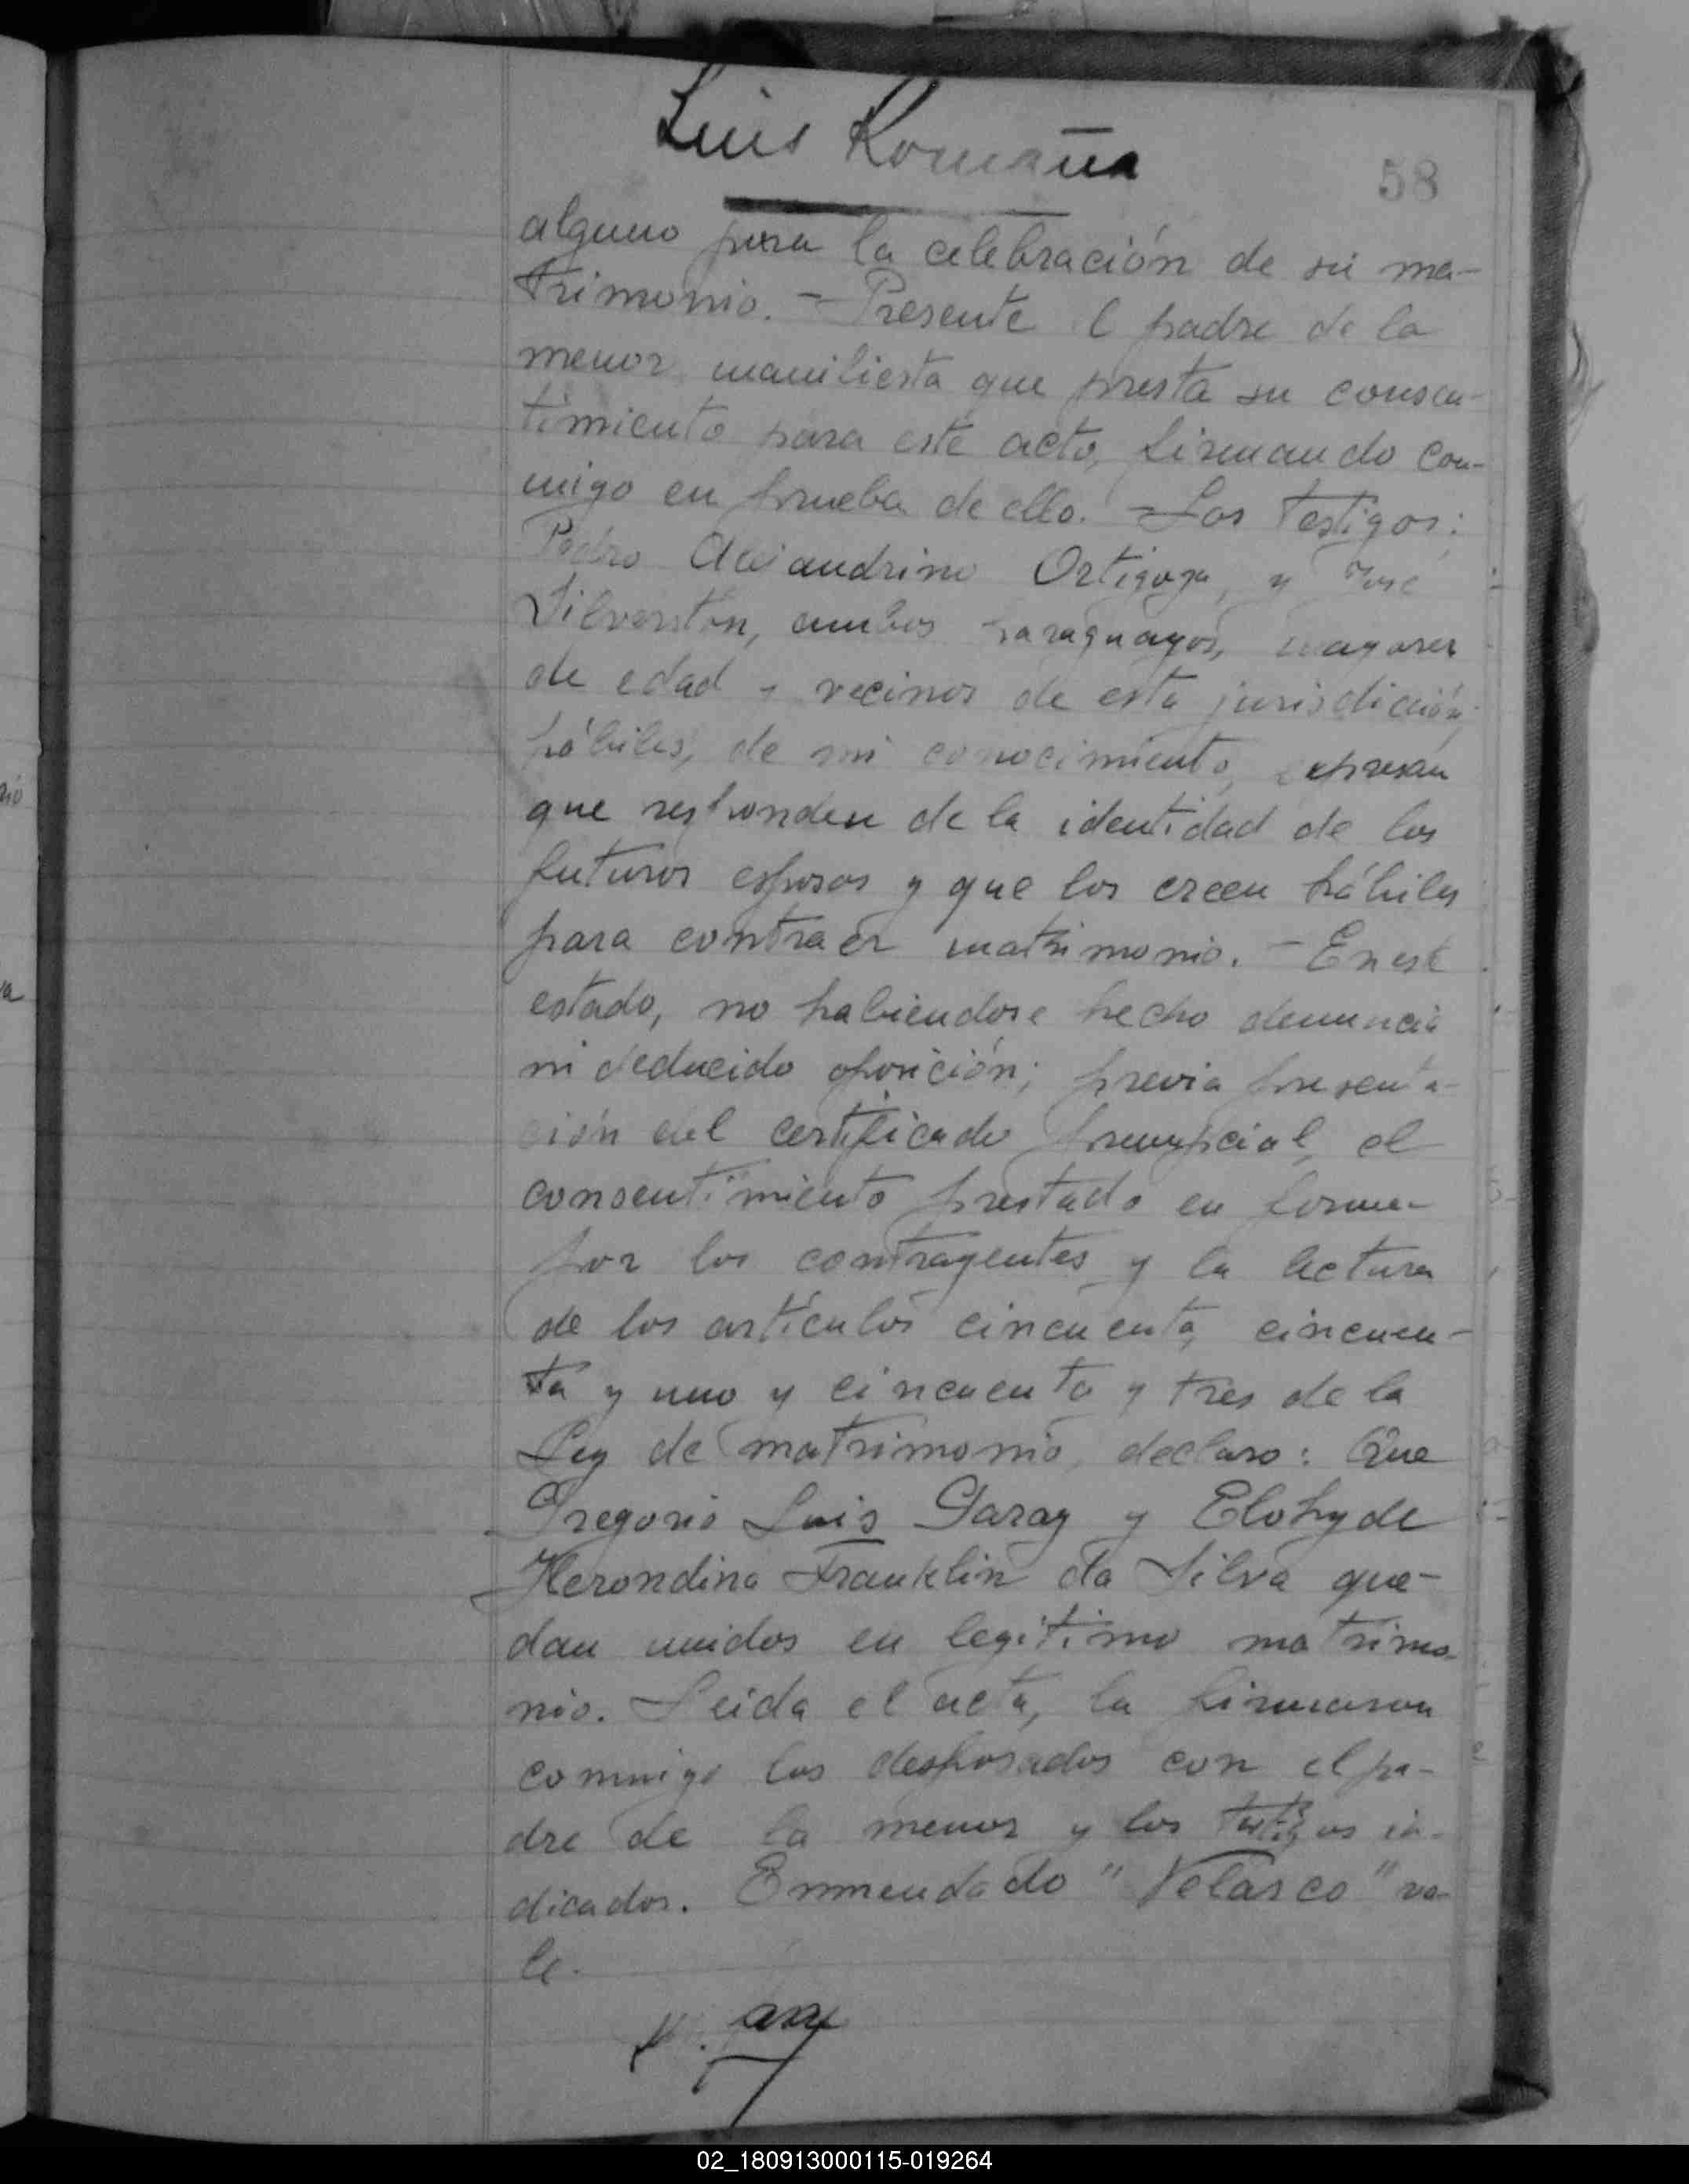 Luis Romaña
58
alguno para la celebración de su ma-
trimonio. - Presente el padre de la
menor manifiesta que presta su consen-
timiento para este acto, firmando con-
migo en prueba de ello. - Los testigos:
Pedro Alejandrino Ortigoza, y José
Silverston, ambos paraguayos, mayores
de edad y vecinos de esta jurisdicción,
hábiles, de mi conocimiento, expresan
que responden de la identidad de los
futuros esposos y que los creen hábiles
para contraer matrimonio. - En este
estado, no habiendose hecho denuncia
ni deducido oposición; previa presenta-
ción del certificado prenupcial, el
consentimiento prestado en forma
por los contrayentes y la lectura
de los artículos cincuenta, cincuen-
ta y uno y cincuenta y tres de la
Ley de matrimonio, declaro: Que
Gregorio Luis Garay y Elohyde
Herondina Franklin da Silva que-
dan unidos en legítimo matrimo-
nio. Leida el acta, la firmaron
conmigo los desposados con el pa-
dre de la menor y los testigos in-
dicados. Enmendado "Velasco" va-
le.
02_180913000115-019264